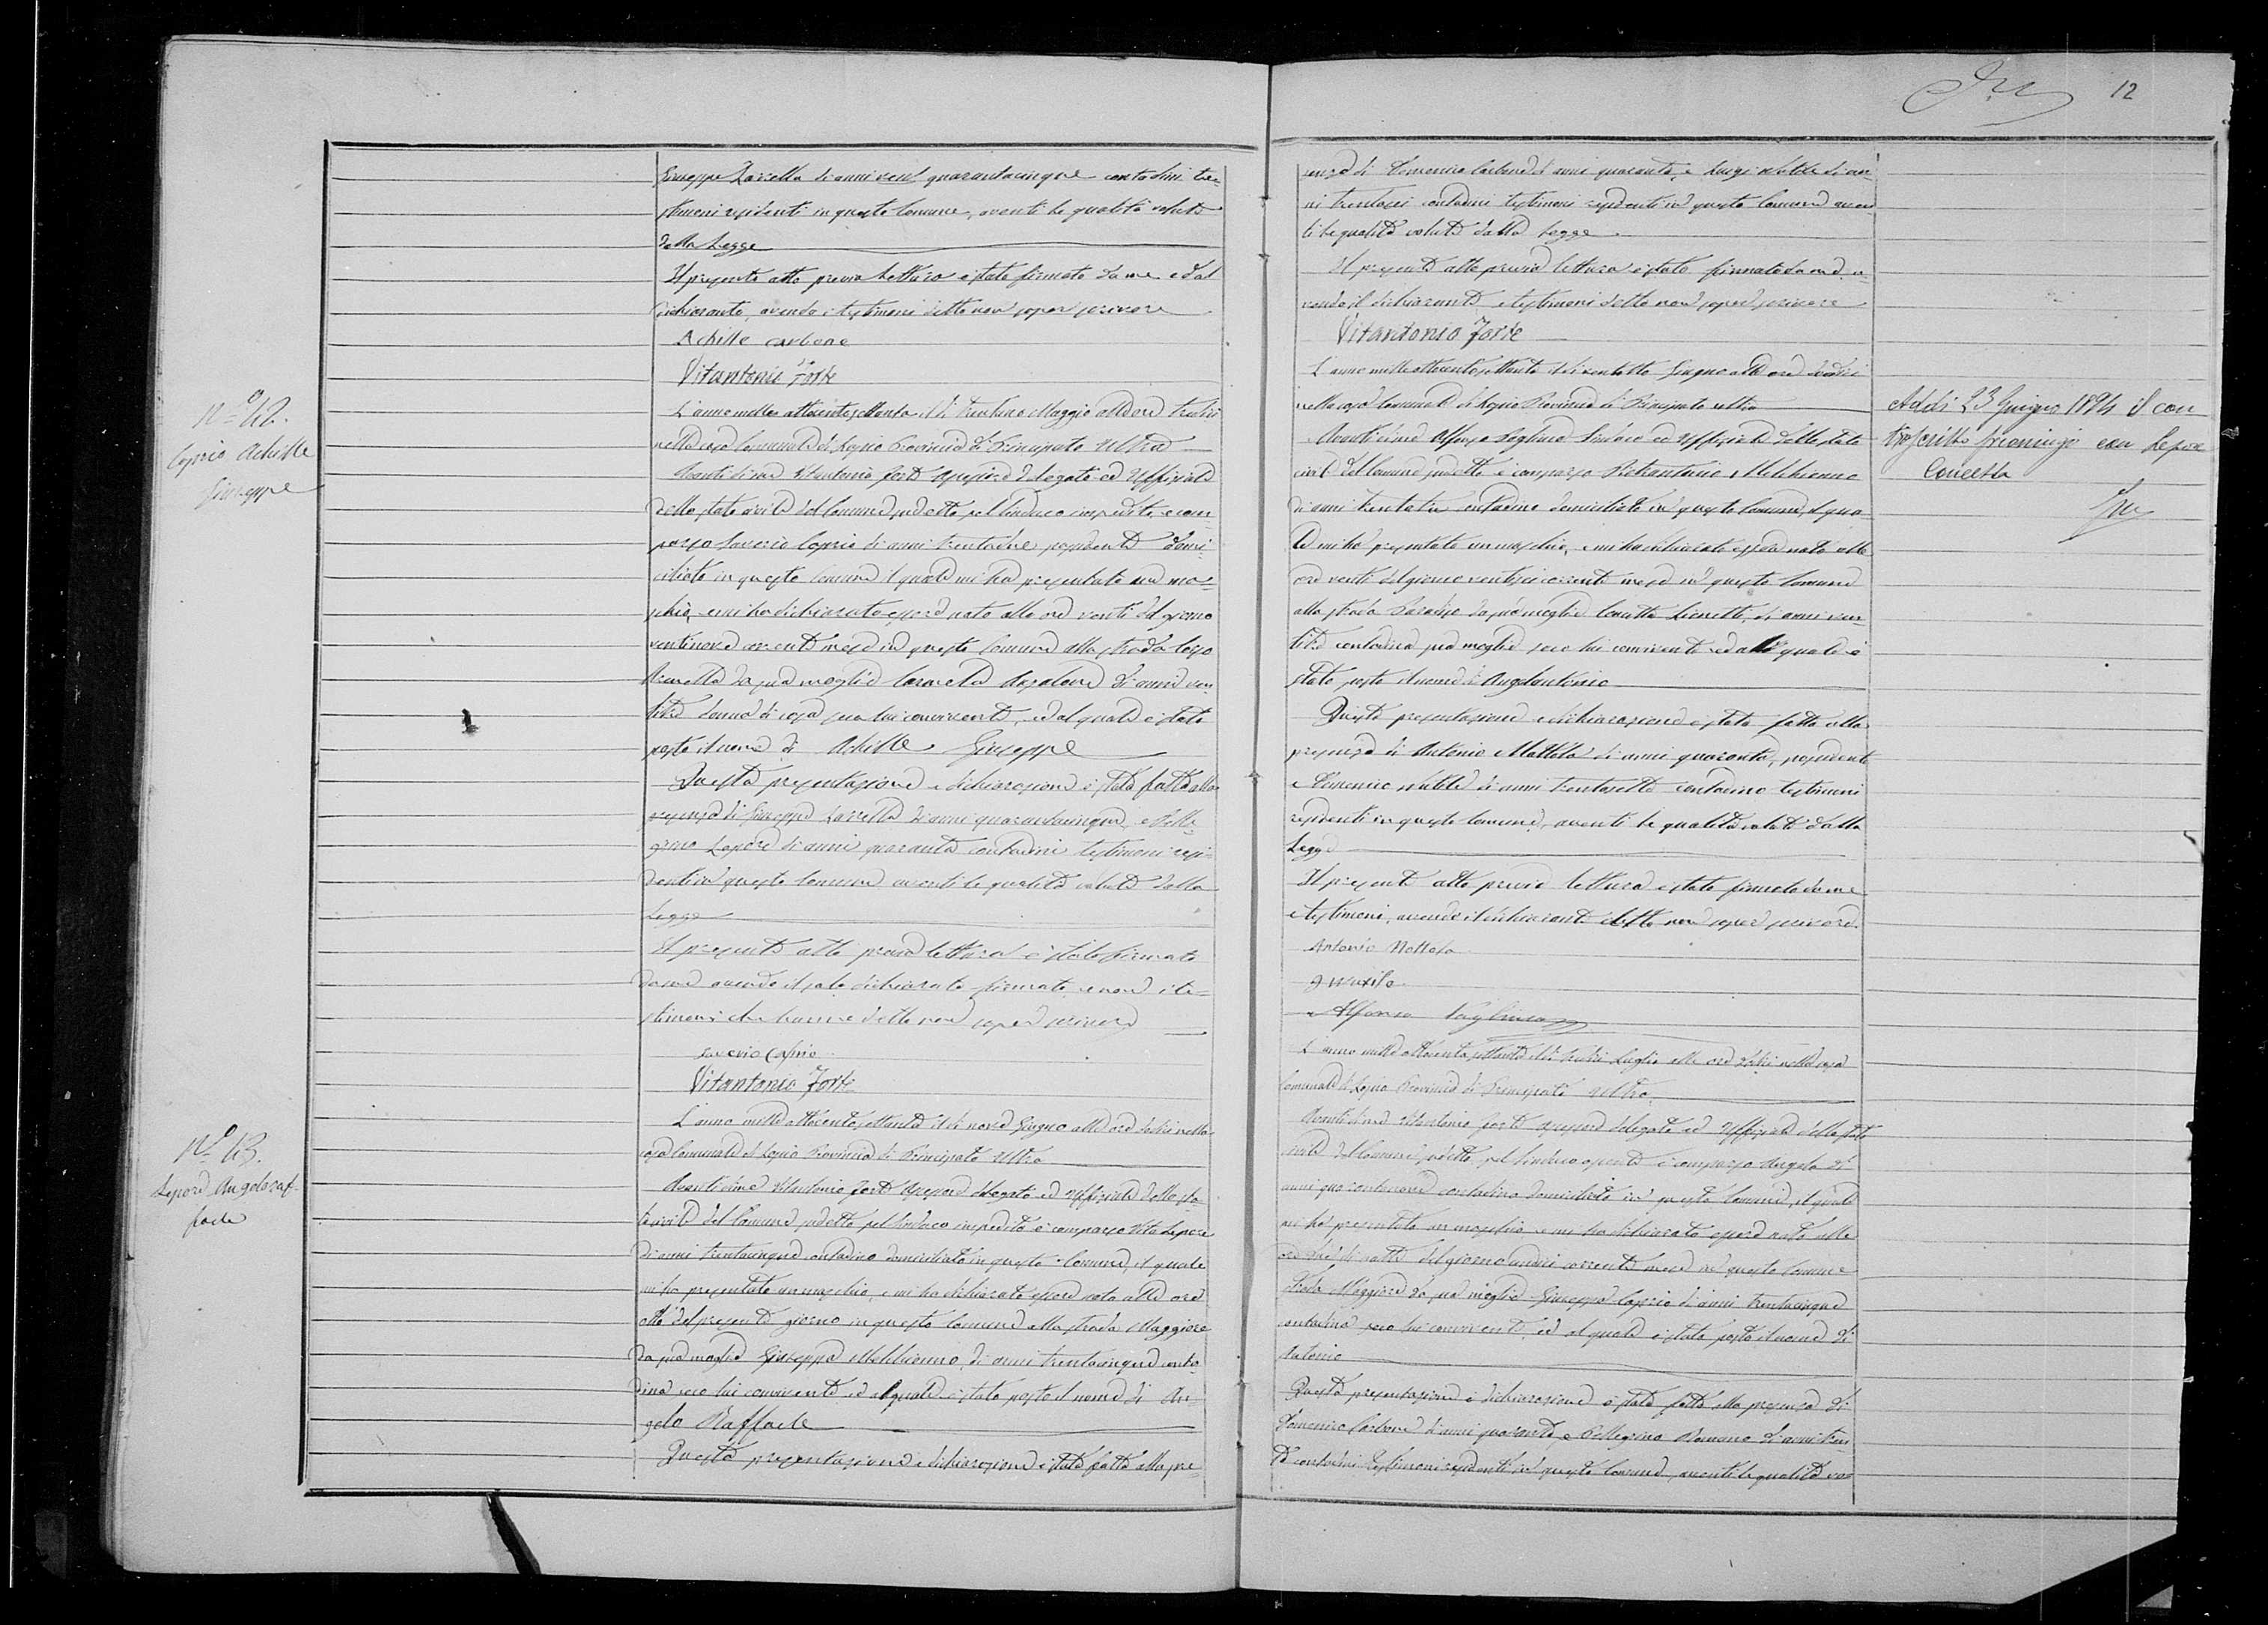 Giuseppe Zarrella di anni quarantacinque contadini te-
stimoni residenti in questo Comune, aventi le qualità volute
dalla Legge
Il presente atto previa lettura è stato firmato da me e dal
dichiarante, avendo i testimoni detto non saper scrivere
Achille carbone
Vitantonio Forte
N.º 42.
Caprio Achille
Giuseppe
L'anno mille ottocentosettanta il dì trentuno Maggio alle ore tredici
nella casa Comunale di Lapio Provincia di Principato Ultra
Avanti di me Vitantonio Forte Assessore delegato ed Uffiziale
dello stato civile del Comune sudetto pel Sindaco impedito, è com-
parso Saverio Caprio di anni trentadue possidente domi-
ciliato in questo Comune il quale mi ha presentato un mas-
schio, e mi ha dichiarato essere nato alle ore venti del giorno
ventinove corrente mese in questo Comune alla strada Corso
da sua moglie Carmela di anni ven-
titre donna di casa seco lui convivente, ed al quale è stato
posto il nome di Achille Giuseppe
Questa presentazione e dichiarazione è stata fatta alla
presenza di Giuseppe Zarrella di anni quarantacinque, e Pelle-
grino Lepore di anni quaranta contadini testimoni resi-
denti in questo Comune aventi le qualità volute dalla
Legge
Il presente atto previa lettura è stato firmato
da me avendo il solo dichiarante firmato, e non i te-
stimoni che hanno detto non saper scrivere
saverio caprio
Vitantonio Forte
N.º 43.
Lepore Angelo raf-
faele
L'anno mille ottocentosettanta il dì nove Giugno alle ore dodici nella
casa Comunale di Lapio Provincia di Principato Ultra
Avanti di me Vitantonio Forte Assessore delegato ed Uffiziale dello sta-
to civile del Comune sudetto pel Sindaco impedito è comparso Vito Lepore
di anni trentacinque contadino domiciliato in questo Comune, il quale
mi ha presentato un maschio, e mi ha dichiarato essere nato alle ore
otto del presente giorno in questo Comune alla strada Maggiore
da sua moglie Giuseppa Melchionno di anni trentacinque conta-
dina seco lui convivente ed al quale è stato posto il nome di An-
gelo Raffaele
Questa presentazione e dichiarazione è stata fatta alla pre-
12
senza di Domenico Carbone di anni quaranta, e Luigi di an-
ni trentasei contadini testimoni residenti in questo Comune aven-
ti le qualità volute dalla Legge.
Il presente atto previa lettura è stato firmato da me a-
vendo il dichiarante e testimoni detto non saper scrivere
Vitantonio Forte
L'anno mille ottocentosettanta il dì ventotto Giugno alle ore dodici
nella casa Comunale di Lapio Provincia di Principato ultra
Avanti di me Alfonso Sindaco ed Uffiziale dello stato
civile del Comune sudetto è comparso Melchionno
di anni trentatre contadino domiciliato in questo Comune, il qua-
le mi ha presentato un maschio, e mi ha dichiarato essere nato alle
ore venti del giorno ventisei corrente mese in questo Comune
alla strada da sua moglie di anni ven-
titre contadina sua moglie seco lui convivente ed al quale è
stato posto il nome di Angelantonio
Questa presentazione e dichiarazione è stata fatta alla
presenza di Antonio Mottola di anni quaranta, possidente
e Domenico di anni trentasette contadino testimoni
residenti in questo Comune, aventi le qualità volute dalla
Legge
Il presente atto previa lettura è stato firmato da me
e testimoni, avendo il dichiarante detto non saper scrivere.
Antonio Mottola
Alfonso
Addì 23 Giugno 1894 il con
troscritto con Lepore
Concetta
L'anno mille ottocento settanta il dì tredici Luglio alle ore dodici nella casa
Comunale di Lapio Provincia di Principato Ultra
Avanti di me Vitantonio Forte Assessore delegato ed Uffiziale dello stato
civile del Comune sudetto pel Sindaco è comparso Angelo di
anni quarantanove contadino domiciliato in questo Comune, il quale
mi ha presentato un maschio e mi ha dichiarato essere nato alle
ore di notte del giorno undici corrente mese in questo Comune
strada Maggiore da sua moglie Giuseppa Caprio di anni trentacinque
contadina seco lui convivente ed al quale è stato posto il nome di
Antonio
Questa presentazione e dichiarazione è stata fatta alla presenza di
Domenico Carbone di anni quaranta, e Pellegrino Romano di anni tren-
ta contadini testimoni residenti in questo Comune, aventi le qualità vo-